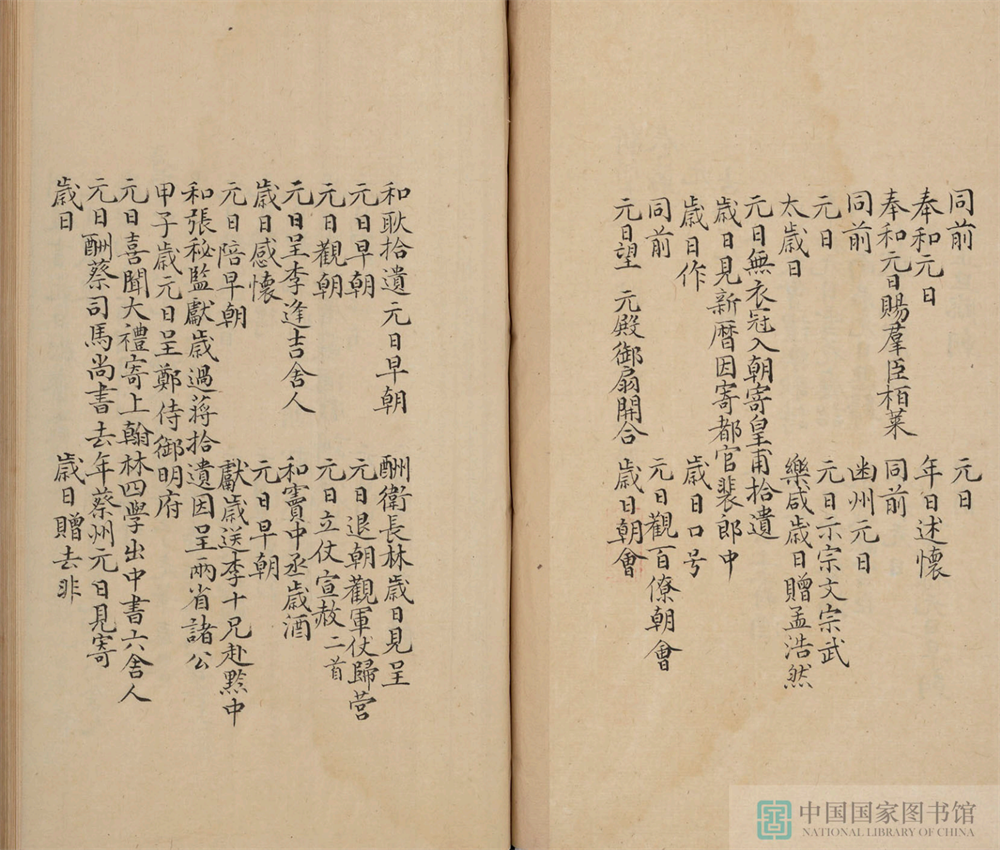 同前 元日
奉和元日 年日述懷
奉和元日賜羣臣栢葉 同前
同前 幽州元日
元日 元日示宗文宗武
太歲日 樂咸歲日贈孟浩然
元日無衣冠入朝寄皇甫拾遺
歲日見新曆因寄都官裴郎中
歲日作 歲日口号
同前 元日觀百僚朝會
元日望 元殿御扇開合 歲日朝會
和耿拾遺元日早朝 酬衛長林歲日見呈
元日早朝 元日退朝觀軍仗歸營
元日觀朝 元日立仗宣赦二首
元日呈李逢吉舍人 和竇中丞歲酒
歲日感懷 元日早朝
元日陪早朝 獻歲送李十兄赴黔中
和張秘監獻歲過蔣拾遺因呈兩省諸公
甲子歲元日呈鄭侍御明府
元日喜聞大禮寄上翰林四學出中書六舍人
元日酬蔡司馬尚書去年蔡州元日見寄
歲日 歲日贈去非
中国国家图书馆
NATIONAL LIBRARY OF CHINA